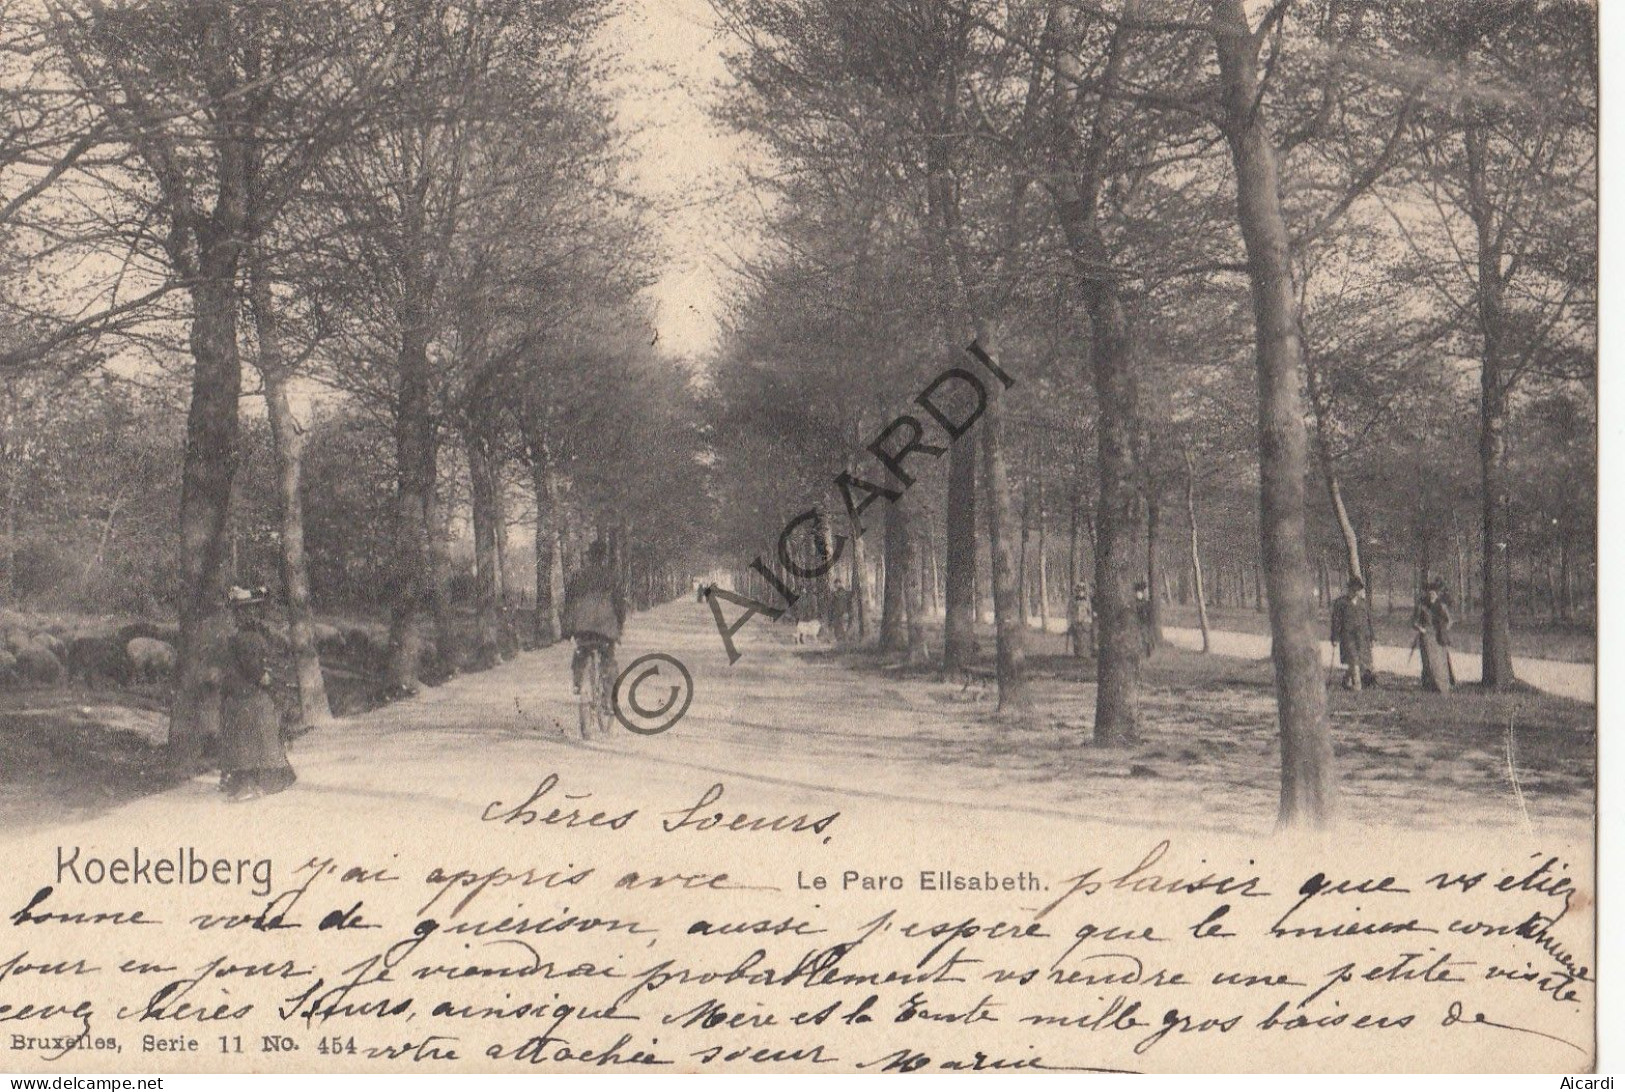 chères Soeurs,
Koekelberg J'ai appris avec Le Parc Elisabeth. plaisir que vs étiez
bonne voie de guérison, aussi j'espère que le mieux continuera
jour en jour, je viendrai probablement vs rendre une petite visite
chères Soeurs, ainsique Mère et la Tante mille gros baisers de
Bruxelles, Serie 11 No. 454 votre attachée soeur Marie
© AICARDI
www.delcampe.net
Aicardi